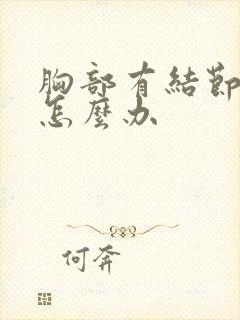 胸部有結節
怎麼办
何奔